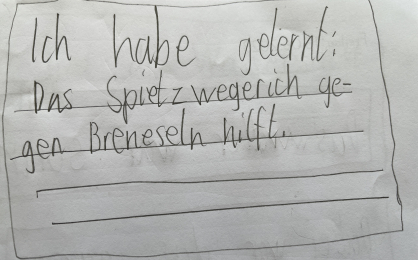 Ich habe gelernt:
Das Spietzwegerich ge=
gen Breneseln hilft.